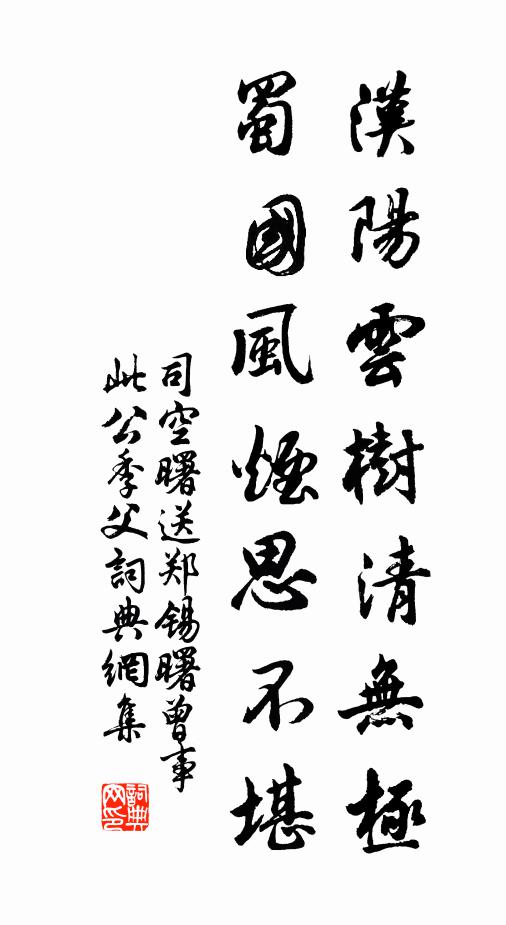 漢陽雲樹清無極
蜀國風煙思不堪
司空曙送郑锡曙曾事
此公季父詞典網集
詞典
网印